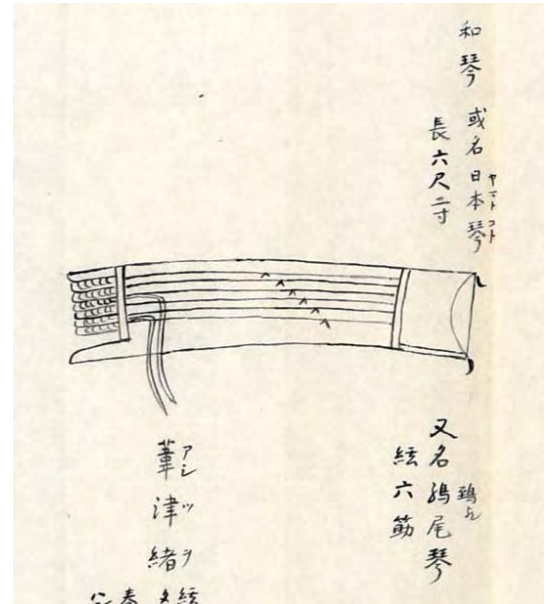 和琴 或名日本琴
ヤマトコト
長六尺二寸
又名鴟尾琴
絃六筋
葦津緒
アシツヲ